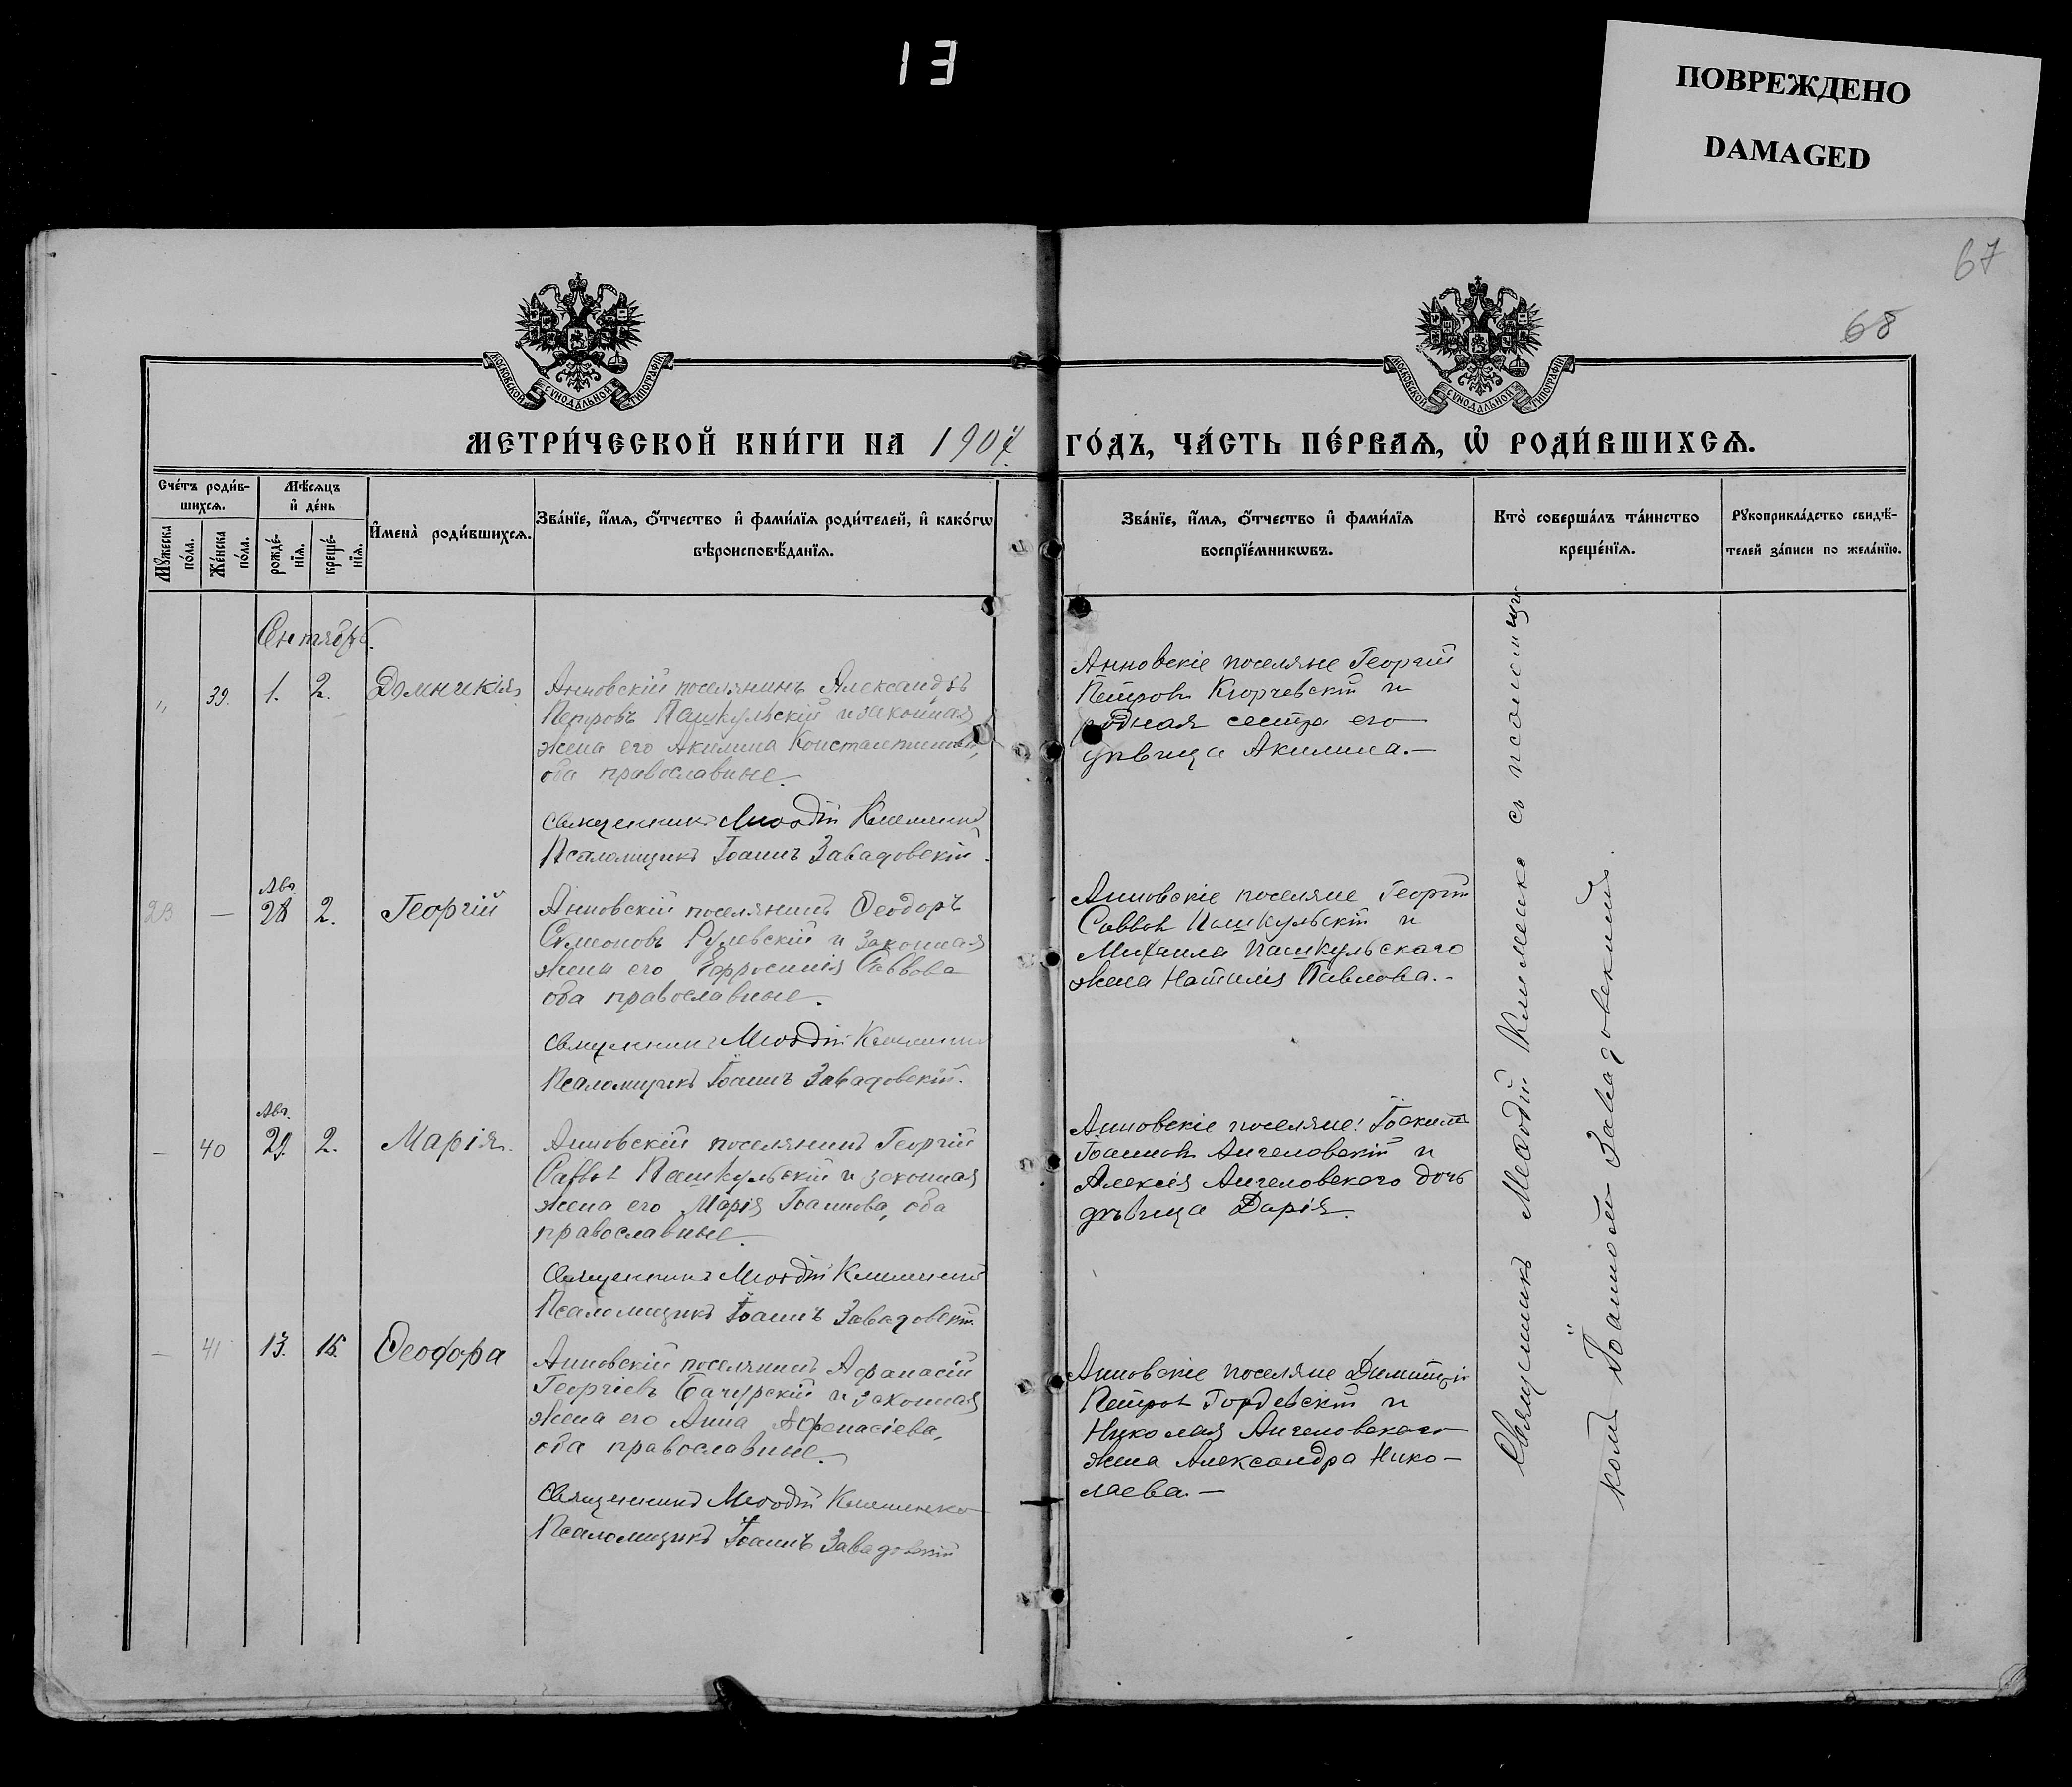 13
ПОВРЕЖДЕНО
DAMAGED
67
68
МОСКОВСКОЙ СѴНОДАЛЬНОЙ ТИПОГРАФІИ
МОСКОВСКОЙ СѴНОДАЛЬНОЙ ТИПОГРАФІИ
МЕТРИ́ЧЕСКОЙ КНИ́ГИ НА 1907. ГО́ДЪ, ЧА́СТЬ ПЕ́РВАѦ, Ѡ҆ РОДИ́ВШИХСѦ.
Сче́тъ роди́в-
шихсѧ.
Мꙋ́жеска
по́ла.
Же́нска
по́ла.
Мѣ́сѧцъ
и҆ де́нь
рожде́-
нїѧ.
креще́-
нїѧ.
И҆мена̀ роди́вшихсѧ.
Зва́нїе, и҆́мѧ, ѻ҆́тчество и҆ фами́лїѧ роди́телей, и҆ како́гѡ
вѣроисповѣ́данїѧ.
Зва́нїе, и҆́мѧ, ѻ҆́тчество и҆ фами́лїѧ
воспрїе́мникѡвъ.
Кто̀ соверша́лъ та́инство
креще́нїѧ.
Рꙋкоприкла́дство свидѣ́-
телей за́писи по жела́нїю.
Сентябрь.
„ 39. 1. 2. Домникія
Анновскій поселянинъ Александръ
Петровъ Пашкульскій и законная
жена его Акилина Константинова,
оба православные.
Священникъ Меѳодій Клименко
Псаломщикъ Іоаннъ Завадовскій.
Анновскіе поселяне Георгій
Петровъ Кюрчевскій и
родная сестра его
дѣвица Акилина.—
23 — Авг. 28 2. Георгій
Анновскій поселянинъ Ѳеодоръ
Сѵмеоновъ Рулевскій и законная
жена его Евфросинія Саввова
оба православные.
Священникъ Меѳодій Клименко
Псаломщикъ Іоаннъ Завадовскій.
Анновскіе поселяне Георгій
Саввовъ Пашкульскій и
Михаила Пашкульскаго
жена Наталія Павлова.—
— 40 Авг. 29. 2. Марія.
Анновскій поселянинъ Георгій
Саввовъ Пашкульскій и законная
жена его Марія Іоаннова, оба
православные.
Священникъ Меѳодій Клименко
Псаломщикъ Іоаннъ Завадовскій.
Анновскіе поселяне: Іоакимъ
Іоанновъ Ангеловскій и
Алексія Ангеловскаго дочь
дѣвица Дарія.
— 41 13. 16. Ѳеодора
Анновскій поселянинъ Аѳанасій
Георгіевъ Бачурскій и законная
жена его Анна Аѳанасіева,
оба православные.
Священникъ Меѳодій Клименко
Псаломщикъ Іоаннъ Завадовскій
Анновскіе поселяне Димитрій
Петровъ Гордевскій и
Николая Ангеловскаго
жена Александра Нико-
лаева.—
Священникъ Меѳодій Клименко съ псаломщи-
комъ Іоанномъ Завадовскимъ.